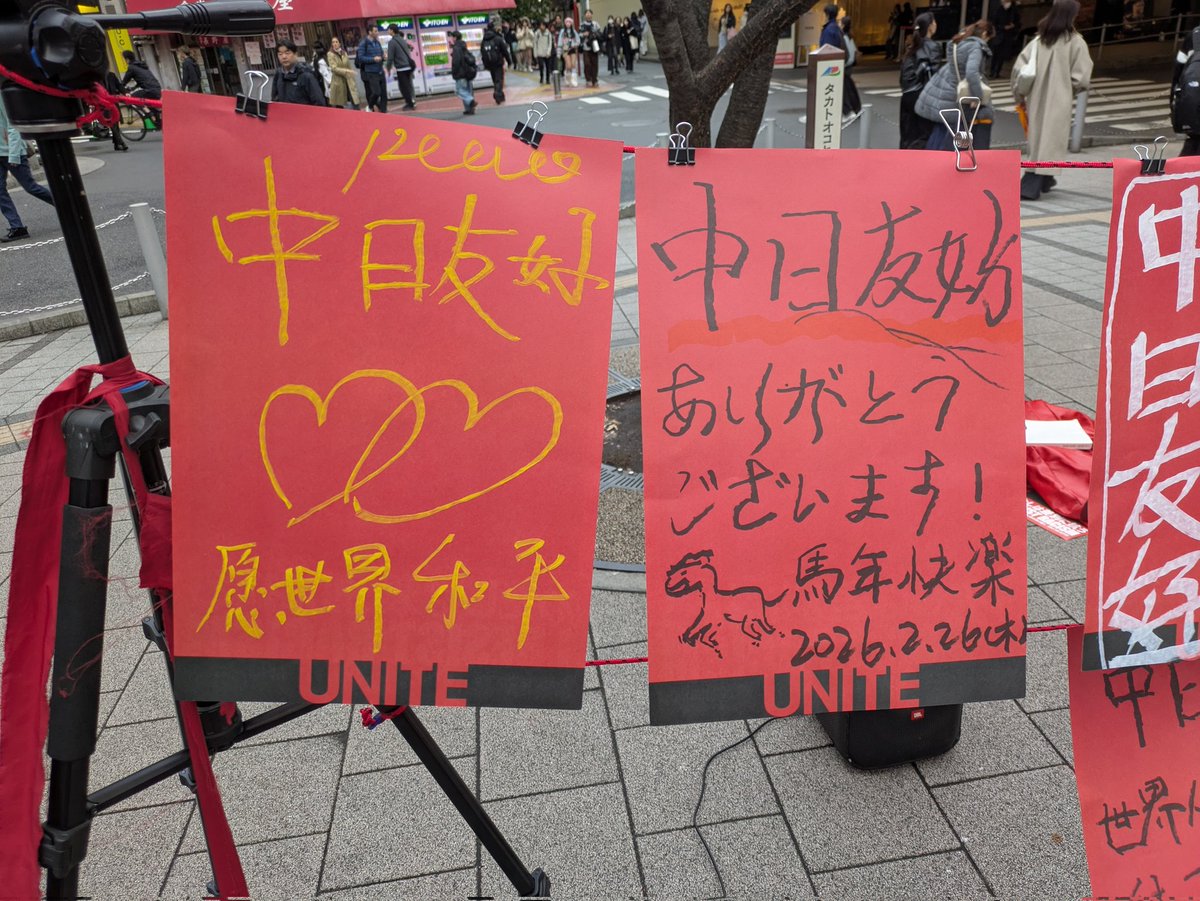 ITOEN
ITOEN
屋
タカトオコ
peace
中日友好
愿世界和平
UNITE
中日友好
ありがとう
ございます!
馬年快楽
2026.2.26(木)
UNITE
中日友好
中日
世界
JBL